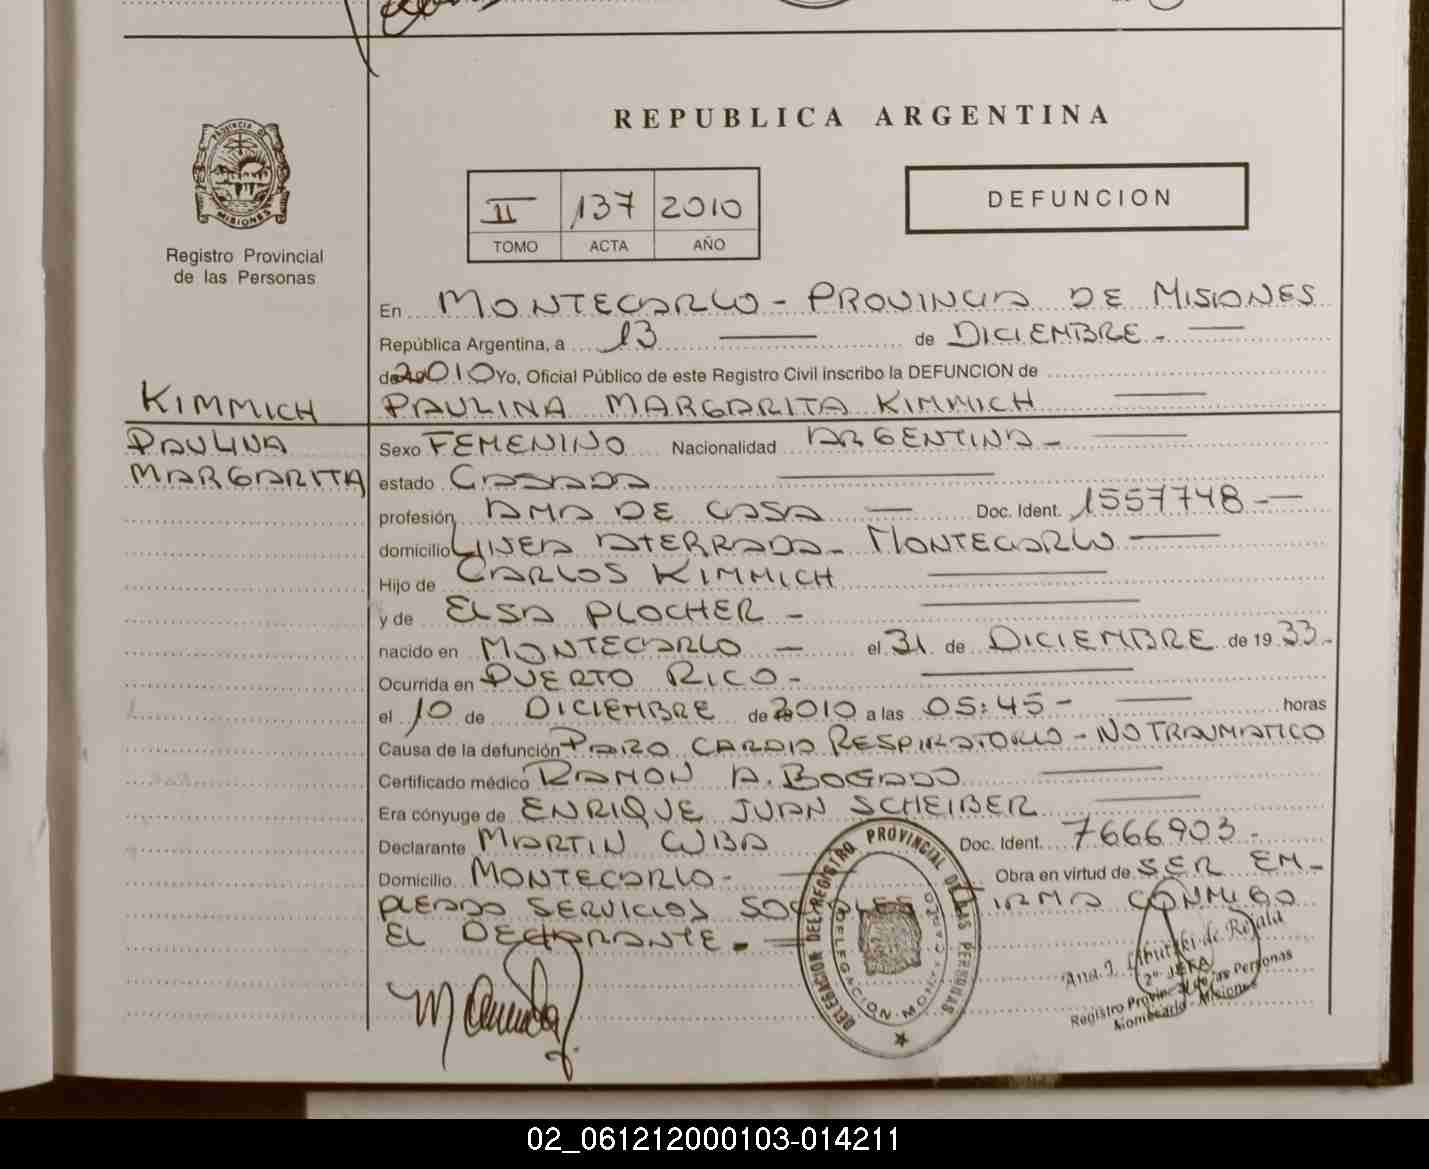 REPUBLICA ARGENTINA
PROVINCIA DE
MISIONES
Registro Provincial
de las Personas
II 137 2010
TOMO ACTA AÑO
DEFUNCION
En MONTECARLO - PROVINCIA DE MISIONES
República Argentina, a 13 de DICIEMBRE -
de 2010 Yo, Oficial Público de este Registro Civil inscribo la DEFUNCION de
PAULINA MARGARITA KIMMICH
KIMMICH
PAULINA
MARGARITA
Sexo FEMENINO Nacionalidad ARGENTINA -
estado CASADA
profesión AMA DE CASA Doc. Ident. 1557748 -
domicilio LINEA ATERRADA - MONTECARLO
Hijo de CARLOS KIMMICH
y de ELSA PLOCHER -
nacido en MONTECARLO - el 31 de DICIEMBRE de 1933 -
Ocurrida en PUERTO RICO -
el 10 de DICIEMBRE de 2010 a las 05:45 - horas
Causa de la defunción PARO CARDIO RESPIRATORIO - NO TRAUMATICO
Certificado médico RAMON A. BOGADO
Era cónyuge de ENRIQUE JUAN SCHEIBER
Declarante MARTIN CUBA Doc. Ident. 7666903 -
Domicilio MONTECARLO - Obra en virtud de SER EM-
PLEADO SERVICIOS SOCIALES FIRMA CONMIGO
EL DECLARANTE -
DELEGACION DEL REGISTRO PROVINCIAL DE LAS PERSONAS
DELEGACION MONTECARLO
Ana I. de Rejala
2º JEFA
Registro Provincial de las Personas
Montecarlo - Misiones
02_061212000103-014211